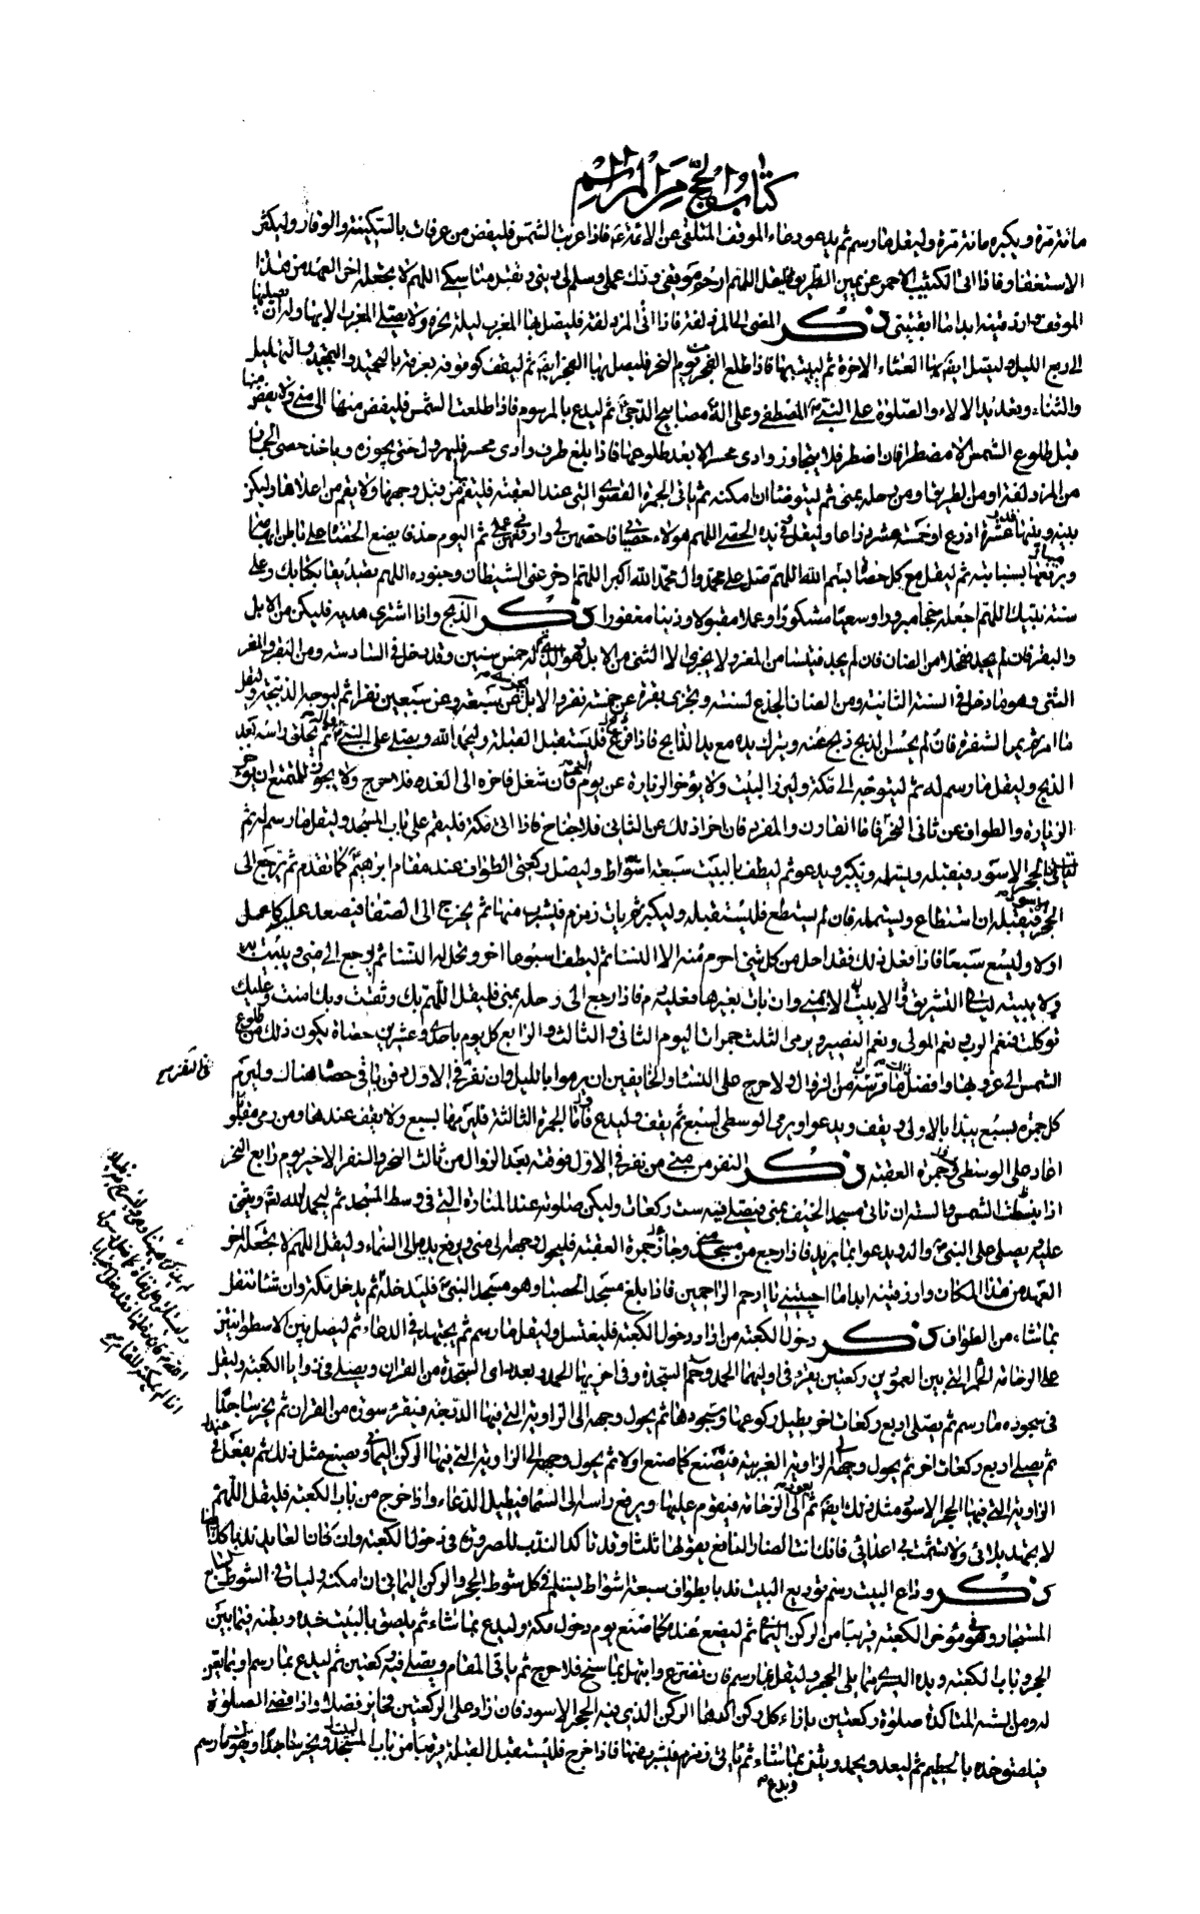 كتاب الحج من المراسم
مائة مرة ويكبره مائة مرة وليقل ما رسم ثم يدعو دعاء الموقف المتلقى عن الائمة ع فاذا غربت الشمس فليفض من عرفات بالسكينة والوقار وليكثر
الاستغفار فاذا اتى الكثيب الاحمر عن يمين الطريق فليقل اللهم ارحم موقفي وزد في عملي وسلم لي ديني وتقبل مناسكي اللهم لا تجعله اخر العهد من هذا
الموقف وارزقنيه ابدا ما ابقيتني ذكر المضي الى المزدلفة فاذا اتى المزدلفة فليصل بها المغرب ليلة نحره ولا يصلي المغرب الا بها ولو ان يصليها
الى ربع الليل وليصل ايضا بها العشاء الاخرة ثم ليبت بها فاذا طلع الفجر من يوم النحر فليصل بها الفجر ايضا ثم ليقف كوقوفه بعرفة بالتحميد والتمجيد والتهليل
والثناء وتعديد الالاء والصلوة على النبي المصطفى وعلى اله مصابيح الدجى ثم ليدع بالمرسوم فاذا طلعت الشمس فليفض منها الى منى ولا يفض منها
قبل طلوع الشمس الا مضطرا فان اضطر فلا يتجاوز وادي محسر الا بعد طلوعها فاذا بلغ طرف وادي محسر فليهرول حتى يجوزه وياخذ حصى الجمار
من المزدلفة او من الطريق او من رحله بمنى ثم ليتوضا ان امكنه ثم ياتي الجمرة القصوى التي عند العقبة فليقم من قبل وجهها ولا يقم من اعلاها وليكن
بينه وبينها عشرة اذرع او خمسة عشر ذراعا وليقل وفي يده الحصى اللهم هولاء حصياتي فاحصهن لي وارفعهن في عملي ثم اليوم حذفا يضع الحصاة على باطن ابهامه
ويرفعها بسبابته ثم ليقل مع كل حصاة بسم الله اللهم صل على محمد وال محمد الله اكبر اللهم ادحر عني الشيطان وجنوده اللهم تصديقا بكتابك وعلى
سنة نبيك اللهم اجعله حجا مبرورا وسعيا مشكورا وعملا مقبولا وذنبا مغفورا ذكر الذبح واذا اشترى هديه فليكن من الابل
والبقر فان لم يجد فحلا من الضان فان لم يجد فتيسا من المعز ولا يجزي الا الثني من الابل وهو الذي تم له خمس سنين وقد دخل في السادسة ومن البقر والمعز
الثني وهو ما دخل في السنة الثانية ومن الضان الجذع لسنته وتجزي بقرة عن خمسة نفر والابل عن سبعة وعن سبعين نفرا ثم ليوجه الذبيحة وليقل
ما امر ثم يمر الشفرة فان لم يحسن الذبح ذبح عنه ويترك يده مع يد الذابح فاذا فرغ فليستقبل القبلة وليحمد الله ويصلي على النبي واله ثم يحلق راسه بعد
الذبح وليقل ما رسم له ثم ليتوجه الى مكة وليزر البيت ولا يؤخر الزيارة عن يوم النحر فان شغل فاخره الى الغد فلا حرج ولا يجوز للمتمتع ان يؤخر
الزيارة والطواف عن ثاني النحر فاما القارن والمفرد فان اخر ذلك عن الثاني فلا جناح فاذا اتى مكة فليقم على باب المسجد وليقل ما رسم له ثم
لياتي الحجر الاسود فيقبله ويستلمه ويكبر ويدعو ثم ليطف بالبيت سبعة اشواط وليصل ركعتي الطواف عند مقام ابرهيم كما تقدم ثم يرجع الى
الحجر فيقبله ان استطاع ويستلمه فان لم يستطع فليستقبله وليكبر ثم يات زمزم فليشرب منها ثم يخرج الى الصفا فيصعد عليه كما عمل
اولا وليسع سبعا فاذا فعل ذلك فقد احل من كل شيء احرم منه الا النساء ثم ليطف اسبوعا اخر وتحل له النساء ثم يرجع الى منى ويبيت
ولا يبيت ليالي التشريق الا بمنى وان بات بغيرها فعليه دم فاذا رجع الى رحله بمنى فليقل اللهم بك وثقت وبك امنت وعليك
توكلت فنعم الرب ونعم المولى ونعم النصير ويرمي الثلث جمرات اليوم الثاني والثالث والرابع كل يوم باحدى وعشرين حصاة يكون ذلك من طلوع
الشمس الى غروبها وافضل ما قرب من الزوال ولا حرج على النساء والخايفين ان يرموا بالليل ومن نفر في الاول دفن باقي حصاه هناك وليرم
كل جمرة بسبع يبتدا بالاولى ويقف ويدعو ويرمي الوسطى بسبع ثم يقف وليدع فاما الجمرة الثالثة فليرمها بسبع ولا يقف عندها ومن رمى مقلوبا
اعاد على الوسطى وجمرة العقبة ذكر النفر من منى من نفر في الاول فوقته بعد الزوال من ثالث النحر والنفر الاخير يوم رابع النحر
اذا انبسطت الشمس والسنة ان ياتي مسجد الخيف بمنى فيصلي فيه ست ركعات وليكن صلوته عند المنارة التي في وسط المسجد ثم ليحمد الله ويثني
عليه ويصلي على النبي واله ويدعو بما يريد فاذا رجع من مسجد منى وجاز جمرة العقبة فليحول وجهه الى منى ويرفع يديه الى السماء وليقل اللهم لا تجعله اخر
العهد من هذا المكان وارزقنيه ابدا ما احييتني يا ارحم الراحمين فاذا بلغ مسجد الحصباء وهو مسجد النبي فليدخله ثم يدخل مكة وان شاء تنفل
بما شاء من الطواف ذكر دخول الكعبة من اراد دخول الكعبة فليغتسل وليقل ما رسم ثم يجتهد في الدعاء ثم ليصل بين الاسطوانتين
على الرخامة الحمراء التي بين العمودين ركعتين يقرء في اوليهما الحمد وحم السجدة وفي اخريهما الحمد وبعدد اي السجدة من القران ويصلي في زوايا الكعبة وليقل
في سجوده ما رسم ثم يصلي اربع ركعات اخر يطيل ركوعها وسجودها ثم يحول وجهه الى الزاوية التي فيها الدرجة فيقرء سورة من القران ثم يخر ساجدا
ثم يصلي اربع ركعات اخر ثم يحول وجهه الى الزاوية الغربية فيصنع كما صنع اولا ثم يحول وجهه الى الزاوية التي فيها الركن اليماني وصنع مثل ذلك ثم يفعل في
الزاوية التي فيها الحجر الاسود مثل ذلك ايضا ثم يعود الى الرخامة فيقوم عليها ويرفع راسه الى السماء فيطيل الدعاء واذا خرج من باب الكعبة فليقل اللهم
لا تجهد بلائي ولا تشمت بي اعدائي فانك انت الضار النافع يقولها ثلثا وقد تاكد الندب للصرورة في دخول الكعبة وان كان لغايره ندبا
ذكر وداع البيت رسم توديع البيت ندبا بطواف سبعة اشواط ليستلم في كل شوط الحجر والركن اليماني ان امكنه وليات في الشوط السابع
المستجار وهو مؤخر الكعبة قريبا من الركن اليماني ثم ليصنع عنده كما صنع يوم دخول مكة وليدع بما شاء ثم يلصق بالبيت خده وبطنه فيما بين
الحجر وباب الكعبة ويده اليسرى مما يلي الحجر وليقل ما رسم فان تضرع وابتهل بما سنح فلا حرج ثم ياتي المقام ويصلي فيه ركعتين ثم ليدع بما رسم
له ومن السنة المتاكدة صلوة ركعتين بازاء كل ركن اكدها الركن الذي فيه الحجر الاسود فان زاد على الركعتين فخاير فضلا واذا قضى الصلوة
فيلصق خده بالحطيم ثم ليعد ويحمد ويثني بما شاء ثم ياتي زمزم فليشرب منها فاذا خرج فليستقبل القبلة قريبا من باب المسجد ويخر ساجدا ويقول ما رسم
ويدع